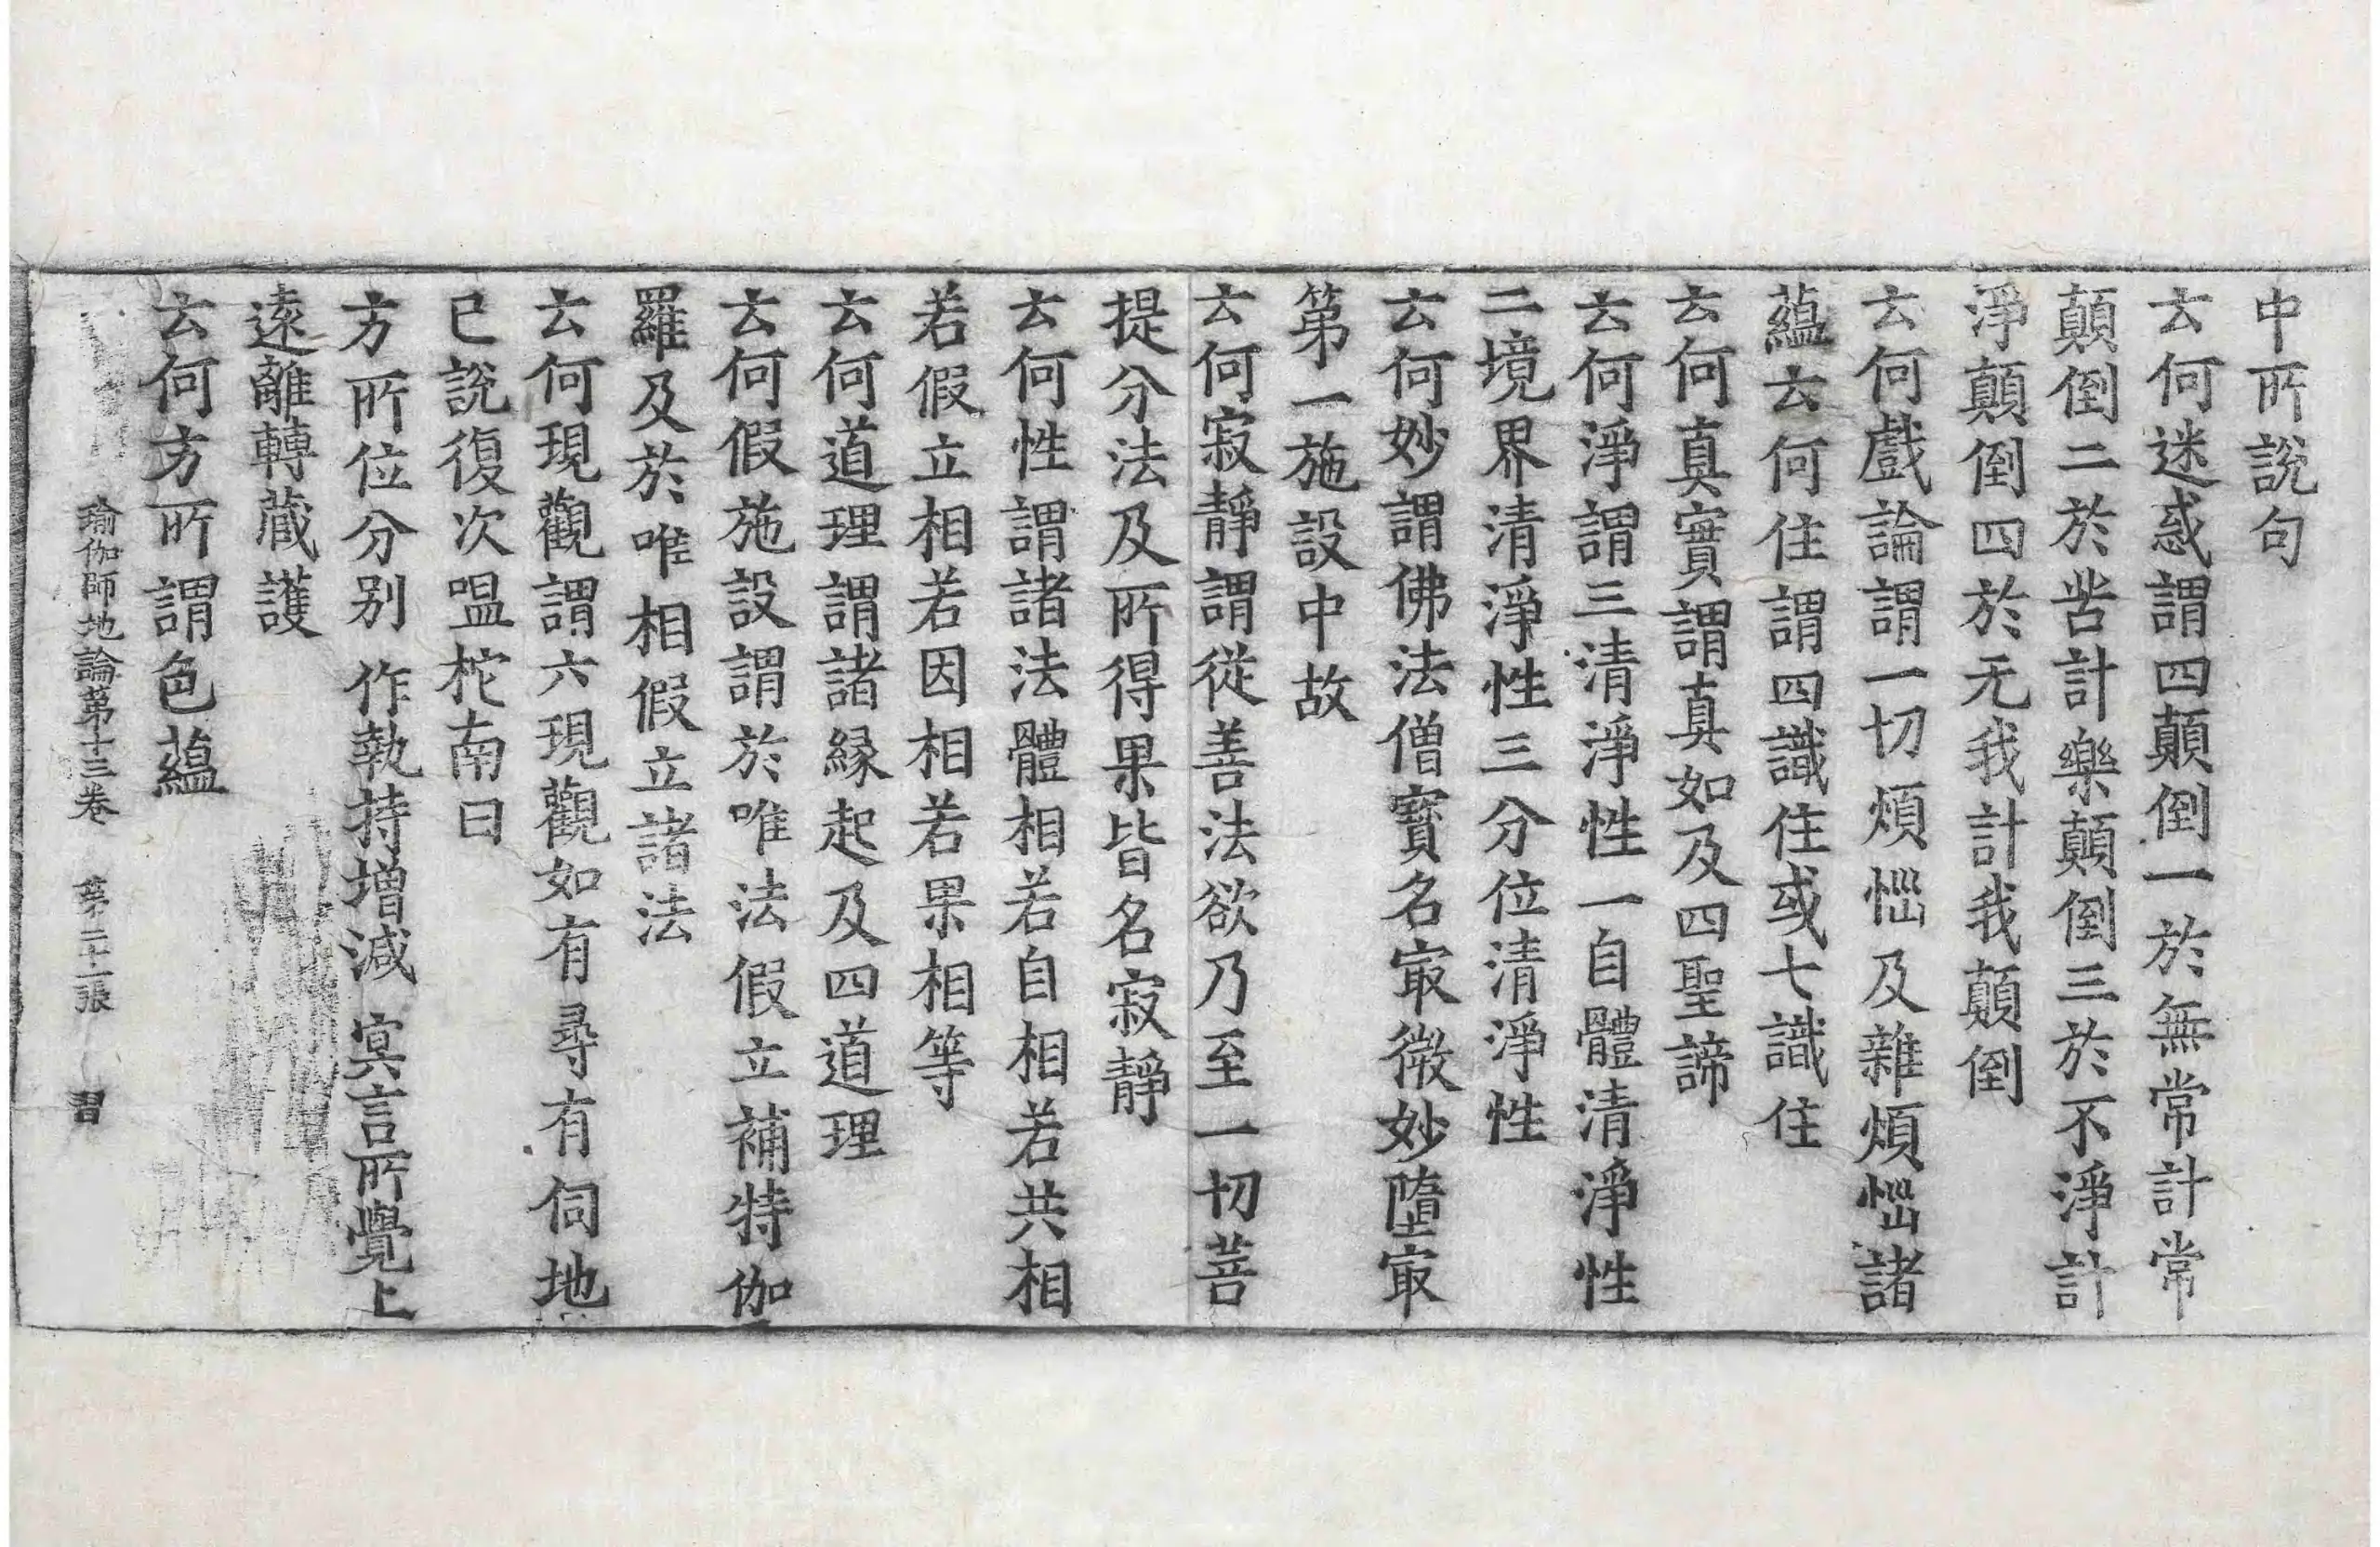 中所說句
云何迷惑謂四顛倒一於無常計常
顛倒二於苦計樂顛倒三於不淨計
淨顛倒四於无我計我顛倒
云何戲論謂一切煩惱及雜煩惱諸
蘊云何住謂四識住或七識住
云何真實謂真如及四聖諦
云何淨謂三清淨性一自體清淨性
二境界清淨性三分位清淨性
云何妙謂佛法僧寶名㝡微妙墮㝡
第一施設中故
云何寂靜謂從善法欲乃至一切菩
提分法及所得果皆名寂靜
云何性謂諸法體相若自相若共相
若假立相若因相若果相等
云何道理謂諸緣起及四道理
云何假施設謂於唯法假立補特伽
羅及於唯相假立諸法
云何現觀謂六現觀如有尋有伺地
已說復次嗢柁南曰
方所位分別 作執持增減 冥言所覺上
遠離轉藏護
云何方所謂色蘊
瑜伽師地論第十三卷 第二十二張 習